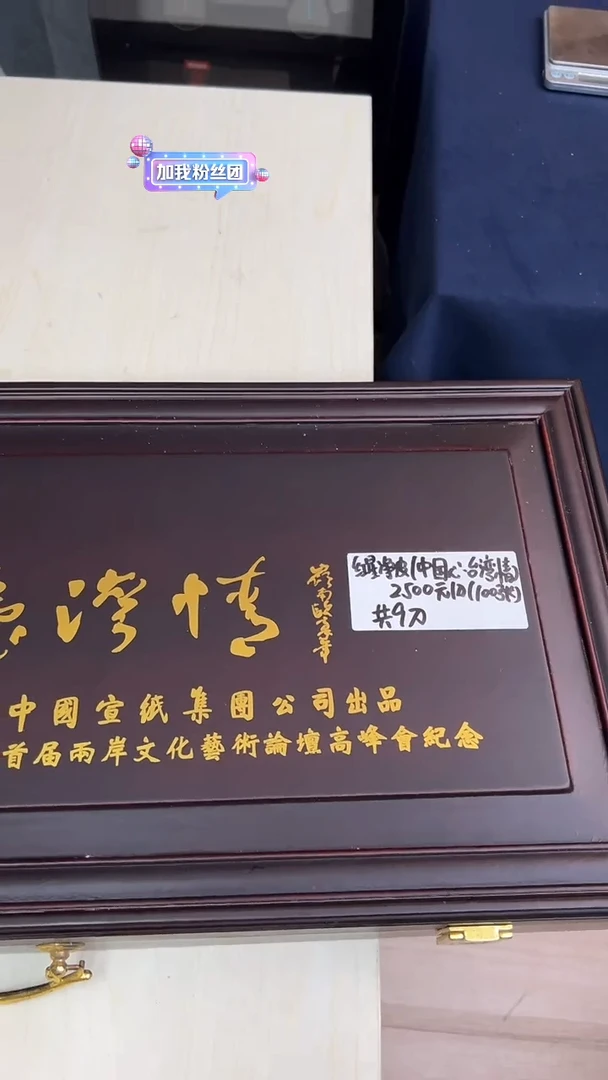 加我粉丝团
臺灣情
红星净皮(中国心·台湾情)
2500元/刀(100张)
共9刀
中國宣紙集團公司出品
首届兩岸文化藝術論壇高峰會紀念